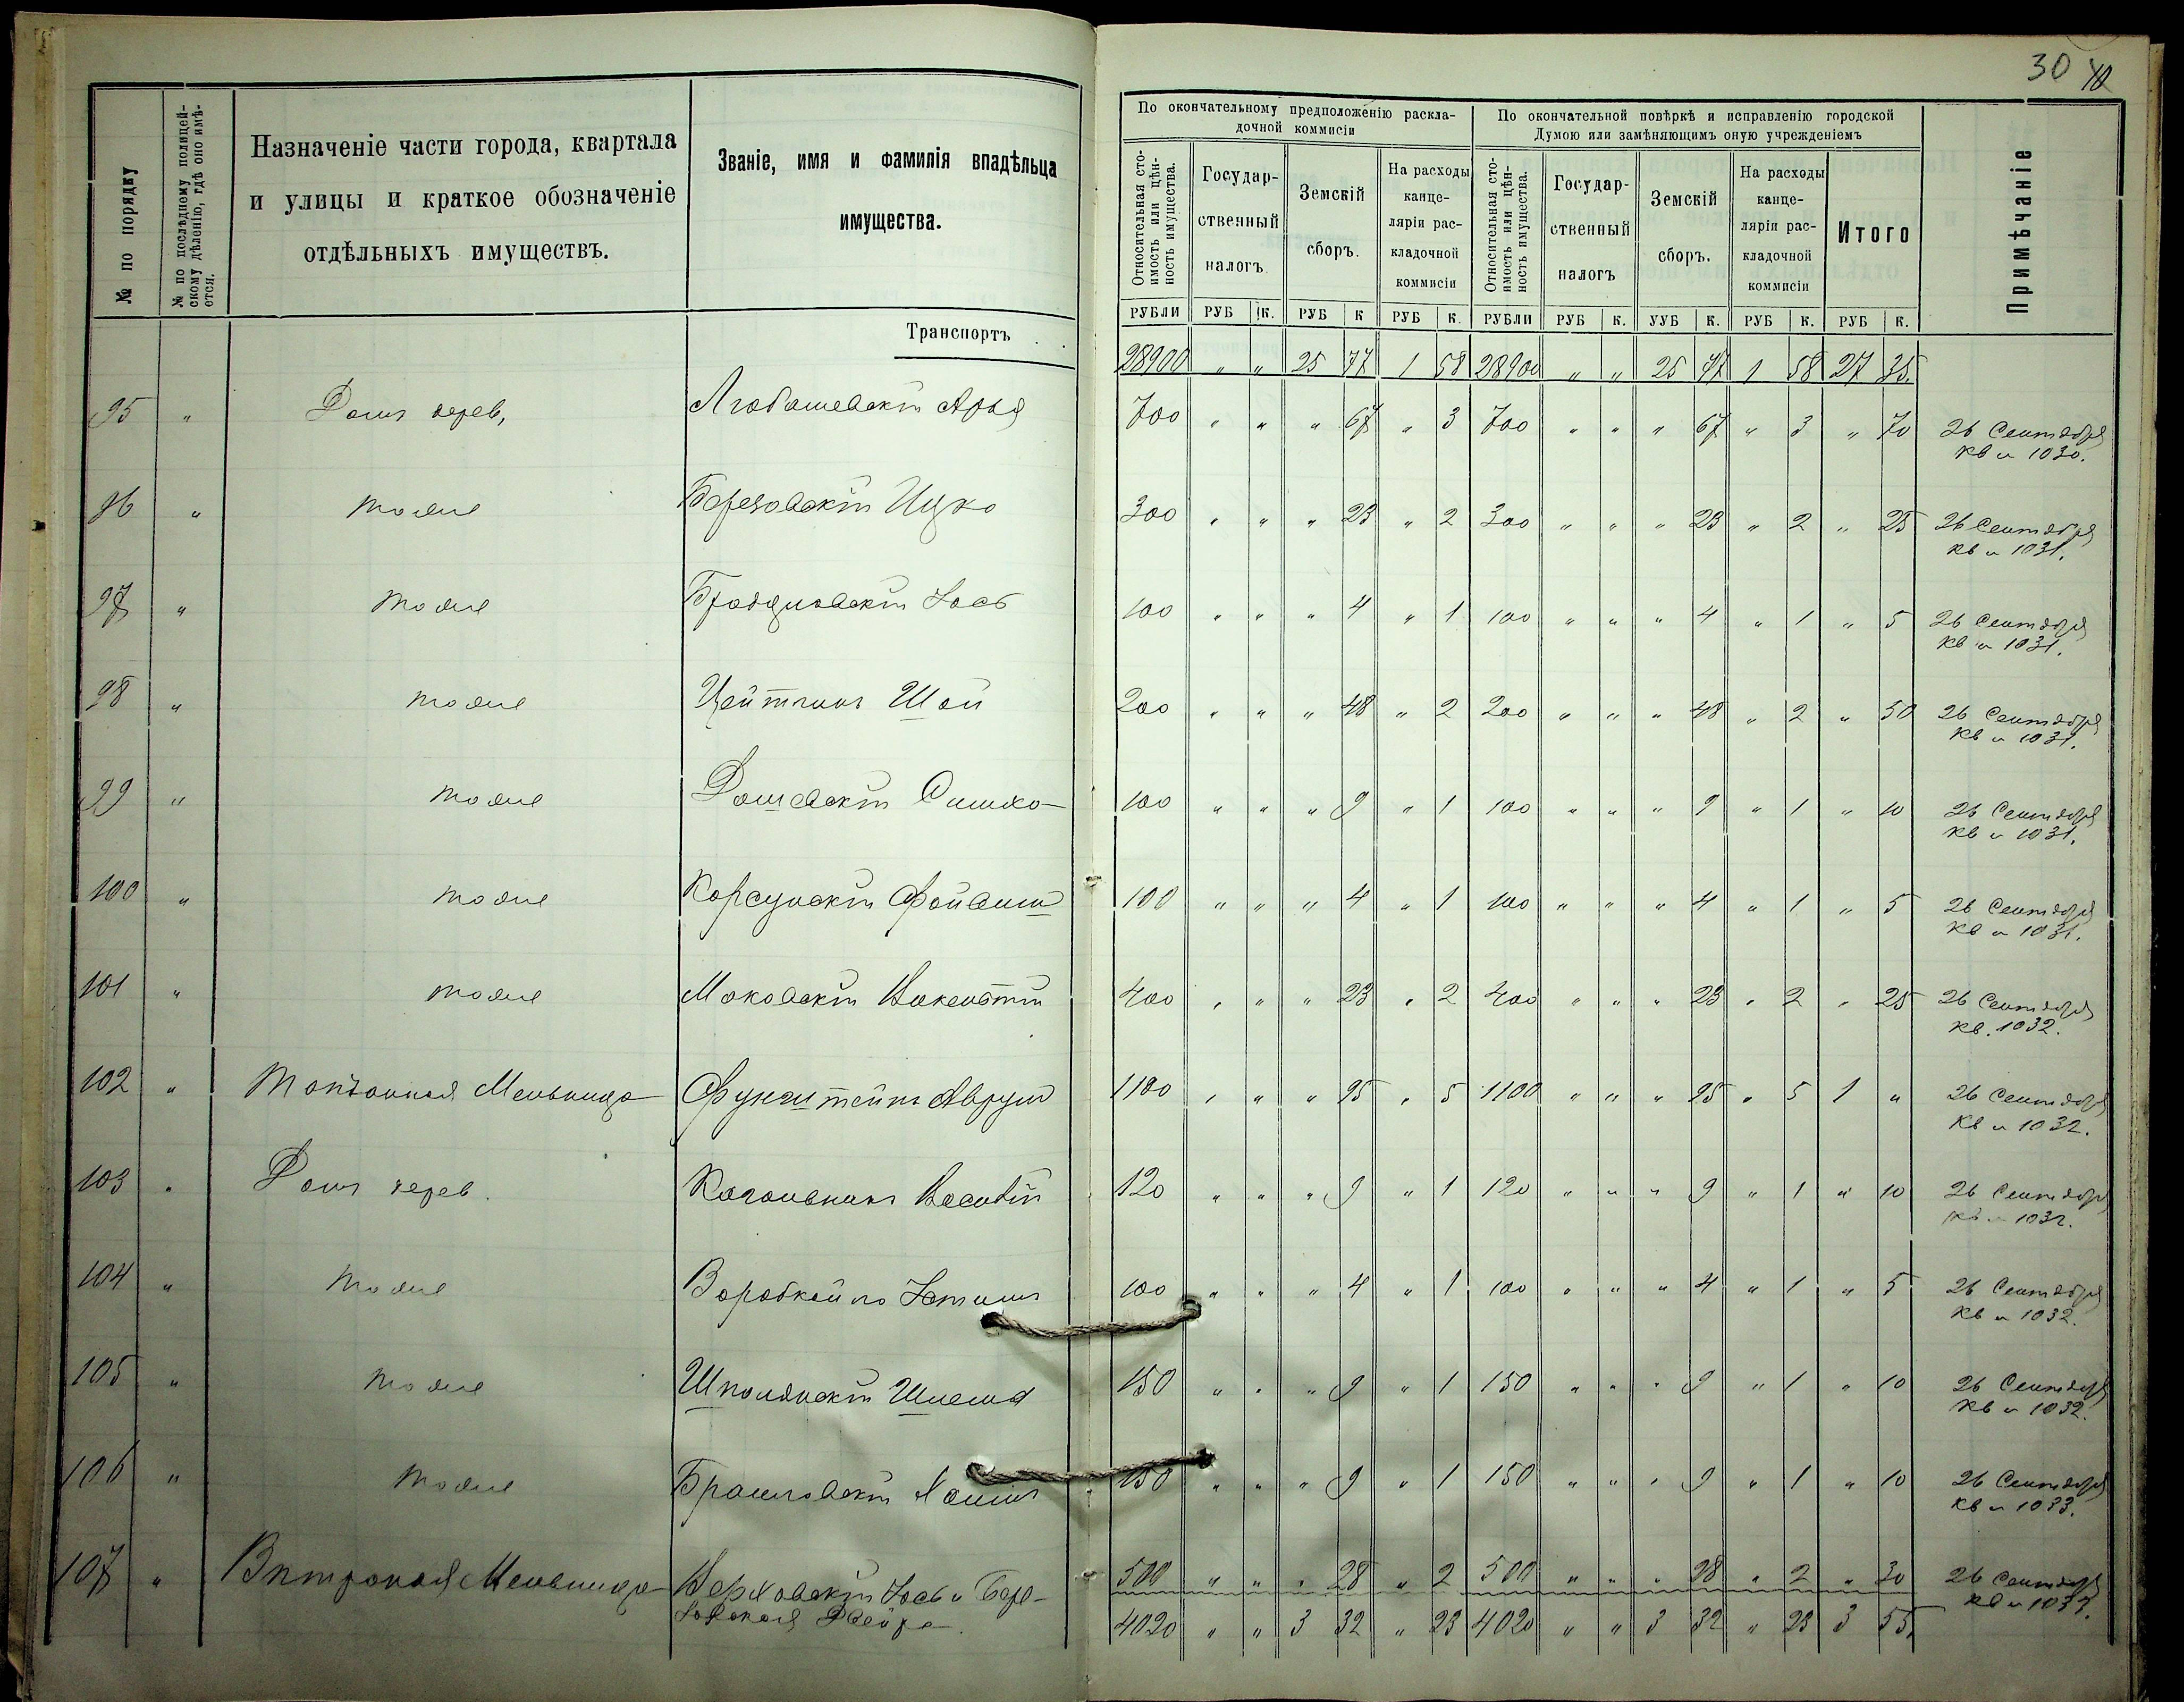 30 40
№ по порядку
№ по послѣднему полицей-
скому дѣленію, гдѣ оно имѣ-
ется.
Назначеніе части города, квартала
и улицы и краткое обозначеніе
отдѣльныхъ имуществъ.
Званіе, имя и фамилія владѣльца
имущества.
По окончательному предположенію раскла-
дочной коммисіи
По окончательной повѣркѣ и исправленію городской
Думою или замѣняющимъ оную учрежденіемъ
Относительная сто-
имость или цѣн-
ность имущества.
Государ-
ственный
налогъ
Земскій
сборъ.
На расходы
канце-
ляріи рас-
кладочной
коммисіи
Относительная сто-
имость или цѣн-
ность имущества.
Государ-
ственный
налогъ
Земскій
сборъ.
На расходы
канце-
ляріи рас-
кладочной
коммисіи
Итого
Примѣчаніе
РУБЛИ РУБ К. РУБ К РУБ К. РУБЛИ РУБ К. УУБ К. РУБ К. РУБ К.
Транспортъ
28900 " " 25 77 1 58 28900 " " 25 77 1 58 27 35.
95 " Домъ дерев, Любашевскій Арья 700 " " " 67 " 3 700 " " " 67 " 3 " 70 26 Сентября
кв № 1030.
96 " тоже Березовскій Ицко 300 " " " 23 " 2 300 " " " 23 " 2 " 25 26 Сентября
кв № 1031.
97 " тоже Іось 100 " " " 4 " 1 100 " " " 4 " 1 " 5 26 Сентября
кв № 1031.
98 " тоже Цейтлинъ Шая 200 " " " 48 " 2 200 " " " 48 " 2 " 50 26 Сентября
кв № 1031.
99 " тоже Дашевскій Симха 100 " " " 9 " 1 100 " " " 9 " 1 " 10 26 Сентября
кв № 1031.
100 " тоже Корсунскій Файвиш 100 " " " 4 " 1 100 " " " 4 " 1 " 5 26 Сентября
кв № 1031.
101 " тоже Маковскій Викентій 400 " " " 23 " 2 400 " " " 23 " 2 " 25 26 Сентября
кв. 1032.
102 " Топчанная Мельница Функштейнъ Аврум 1100 " " " 95 " 5 1100 " " " 95 " 5 1 " 26 Сентября
кв № 1032.
103 " Домъ дерев. Василій 120 " " " 9 " 1 120 " " " 9 " 1 " 10 26 Сентября
кв № 1032.
104 " тоже Воробкойло 100 " " " 4 " 1 100 " " " 4 " 1 " 5 26 Сентября
кв № 1032.
105 " тоже Шполянскій Шлема 150 " " " 9 " 1 150 " " " 9 " 1 " 10 26 Сентября
кв № 1032.
106 " тоже Браиловскій Хаимъ 150 " " " 9 " 1 150 " " " 9 " 1 " 10 26 Сентября
кв № 1033.
107 " Вѣтряная Мельница Верховскій Іось и Бер- 500 " " " 28 " 2 500 " " " 28 " 2 " 30 26 Сентября
кв № 1033.
4020 " " 3 32 " 23 4020 " " 3 32 " 23 3 55.